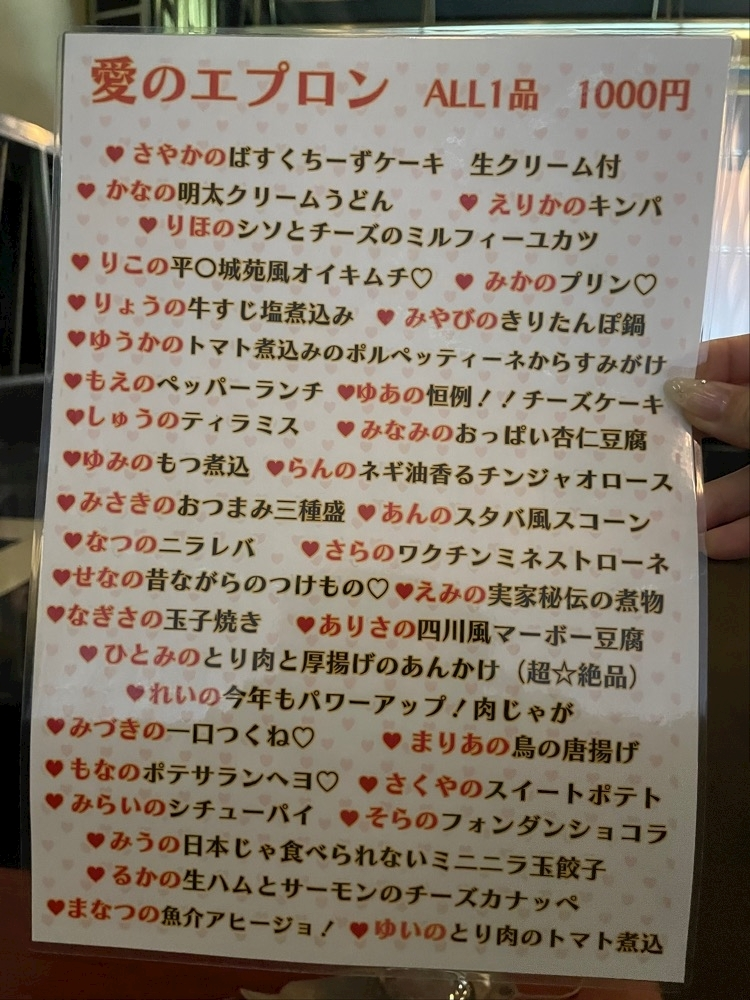 愛のエプロン ALL1品 1000円
♥さやかのばすくちーずケーキ 生クリーム付
♥かなの明太クリームうどん ♥えりかのキンパ
♥りほのシソとチーズのミルフィーユカツ
♥りこの平〇城苑風オイキムチ♡ ♥みかのプリン♡
♥りょうの牛すじ塩煮込み ♥みやびのきりたんぽ鍋
♥ゆうかのトマト煮込みのポルペッティーネからすみがけ
♥もえのペッパーランチ ♥ゆあの恒例!!チーズケーキ
♥しゅうのティラミス ♥みなみのおっぱい杏仁豆腐
♥ゆみのもつ煮込 ♥らんのネギ油香るチンジャオロース
♥みさきのおつまみ三種盛 ♥あんのスタバ風スコーン
♥なつのニラレバ ♥さらのワクチンミネストローネ
♥せなの昔ながらのつけもの♡ ♥えみの実家秘伝の煮物
♥なぎさの玉子焼き ♥ありさの四川風マーボー豆腐
♥ひとみのとり肉と厚揚げのあんかけ(超☆絶品)
♥れいの今年もパワーアップ!肉じゃが
♥みづきの一口つくね♡ ♥まりあの鳥の唐揚げ
♥もなのポテサランヘヨ♡ ♥さくやのスイートポテト
♥みらいのシチューパイ ♥そらのフォンダンショコラ
♥みうの日本じゃ食べられないミニニラ玉餃子
♥るかの生ハムとサーモンのチーズカナッペ
♥まなつの魚介アヒージョ! ♥ゆいのとり肉のトマト煮込